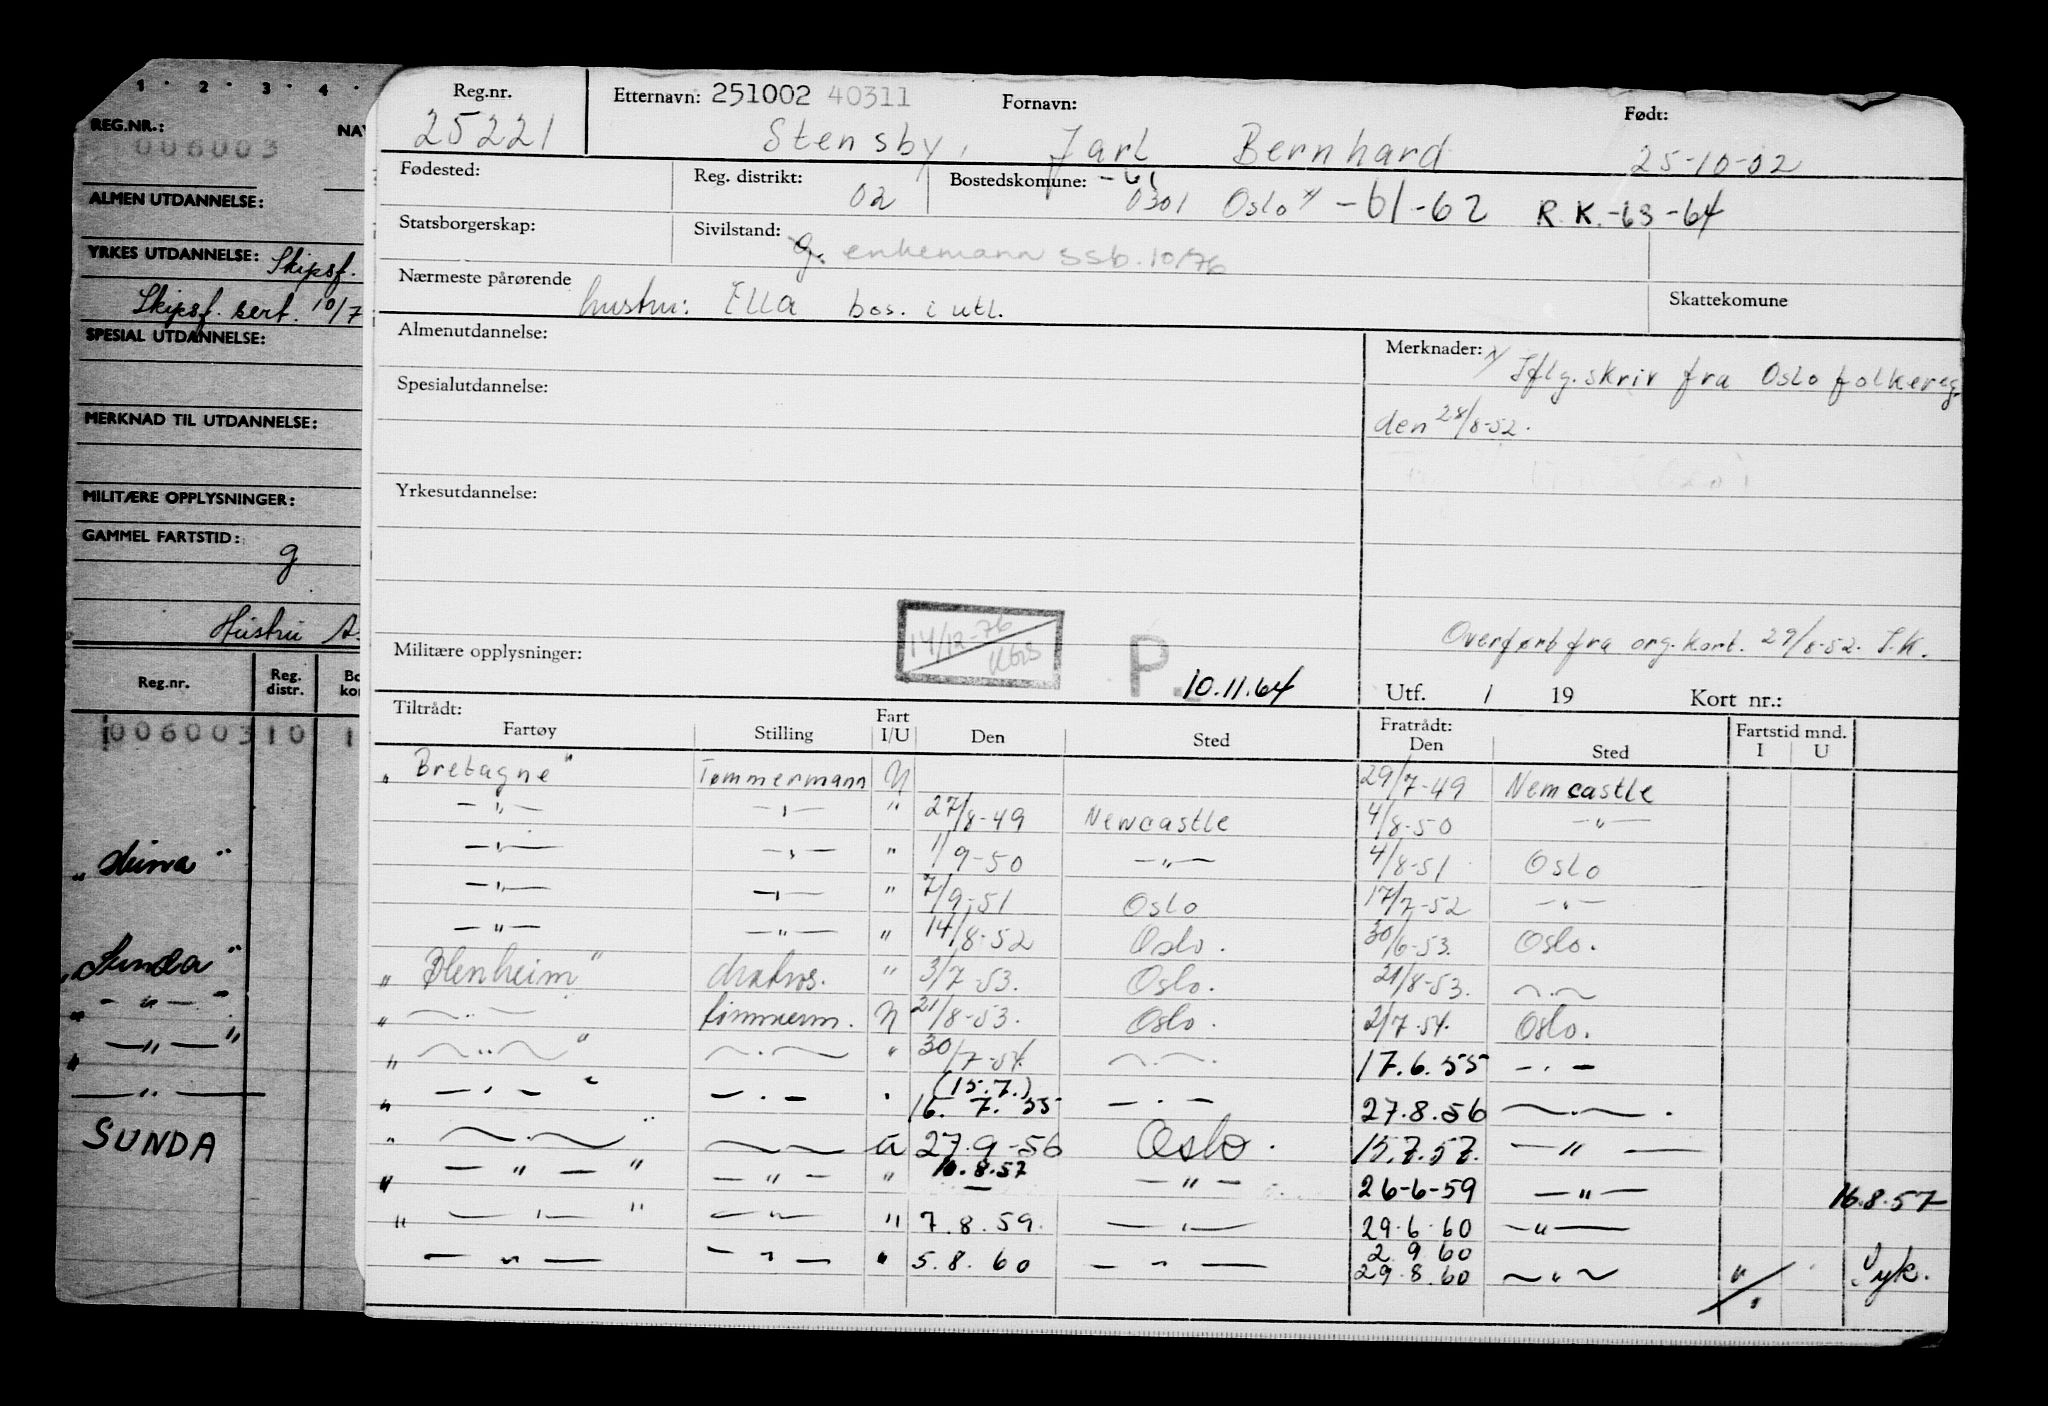 1 · 2 · 3 · 4 ·
REG.NR.:
006003
ALMEN UTDANNELSE:
YRKES UTDANNELSE: Skipsf.
Skipsf. sert. 10/7
SPESIAL UTDANNELSE:
MERKNAD TIL UTDANNELSE:
MILITÆRE OPPLYSNINGER:
GAMMEL FARTSTID:
g
Hustru
Reg.nr. Reg. distr.
006003 10 1
SUNDA
„Sunda"
— „ — "
— „ — "
— „ —
SUNDA
Reg.nr. Etternavn: 251002 40311 Fornavn: Født:
25221 Stensby, Jarl Bernhard 25-10-02
Fødested: Reg. distrikt: 02 Bostedskommune: -61 0301 Oslo x/ -61-62 R.K.-63-64
Statsborgerskap: Sivilstand: g. enkemann ssb. 10/76
Nærmeste pårørende hustru: Ella bos. i utl. Skattekomune
Almenutdannelse: Merknader: x/ Iflg. skriv fra Oslo folkereg.
Spesialutdannelse: den 28/8-52.
Yrkesutdannelse:
14/12-76
Overført fra org. kort. 29/8-52. I.K.
Militære opplysninger: P. 10.11.64 Utf. / 19 Kort nr.:
Tiltrådt: Fratrådt: Fartstid mnd.
Fartøy Stilling Fart I/U Den Sted Den Sted I U
„Bretagne" Tømmermann U 29/7-49 Newcastle
— „ — — „ — " 27/8-49 Newcastle 4/8-50 — „ —
— „ — — „ — " 1/9-50 — „ — 4/8-51 Oslo
— „ — — „ — " 7/9-51 Oslo 17/7-52 — „ —
— „ — — „ — " 14/8-52 Oslo. 30/6-53. Oslo.
„Blenheim" Matros. " 3/7-53. Oslo. 21/8-53. — „ —
„ — „ — tømmerm. U 21/8-53. Oslo. 2/7-54. Oslo.
„ — „ — " — „ — " 30/7-54. — „ — 17.6.55 — „ —
(15.7.)
„ — „ — " — „ — " 16. 7. 55 — „ — 27.8.56 — „ — .
„ — „ — " — „ — u 27.9-56 Oslo. 15.7.57. — „ —
„ — „ — " — „ — " 16.8.57 — „ — 26-6-59 — „ — 16.8.57
„ — „ — " — „ — " 7.8.59. — „ — 29.6.60 — „ —
2.9.60
— „ — — „ — " 5.8.60 — „ — 29.8.60 — „ — "/" Syk.